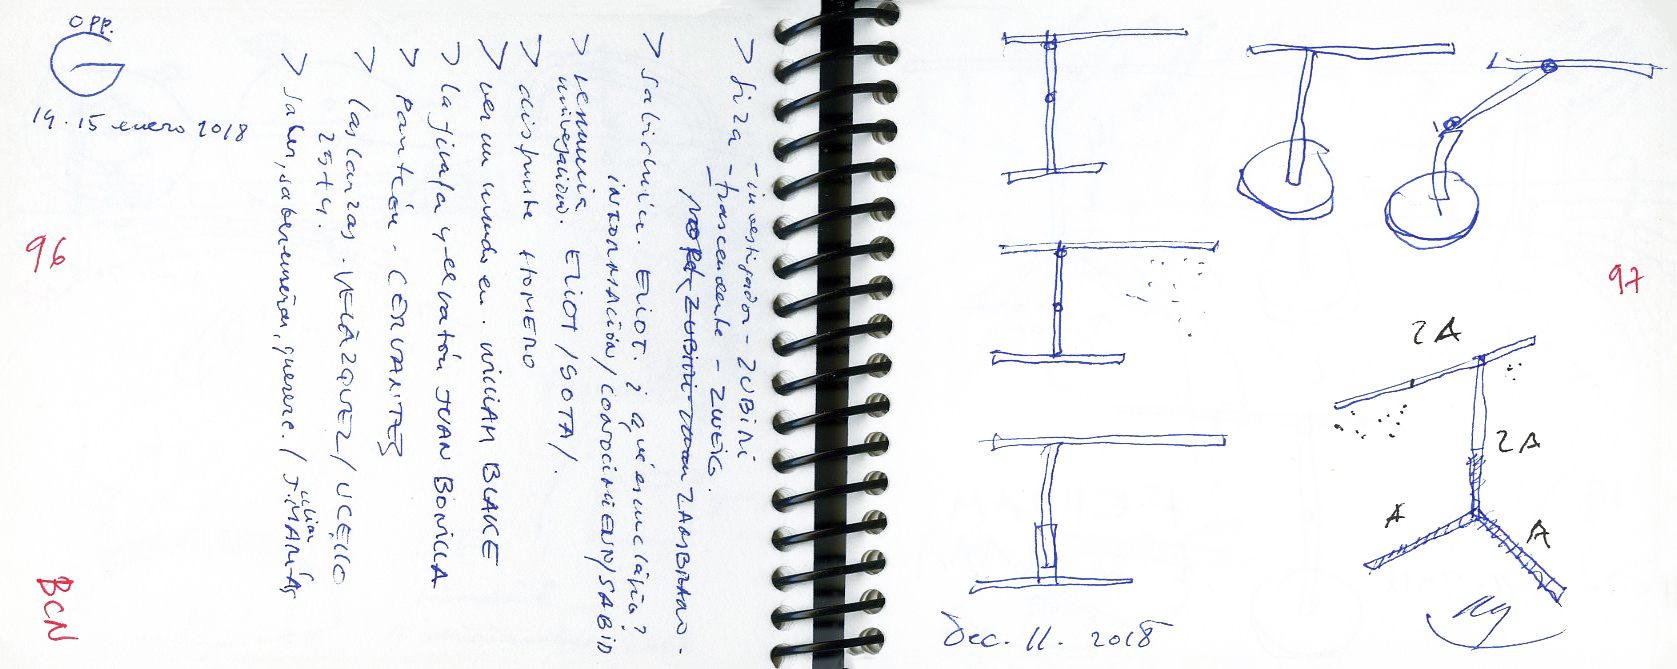 OPP.
G
14.15 enero 2018
96
BCN
> Siza - investigador - ZUBIRI
- trascendente - ZWEIG.
ZUBIRI ZAMBRANO.
> Sabiduría. ELIOT. ¿qué es
INFORMACIÓN/CONOCIMIENTO/SABID
> renuncia
universalidad. ELIOT/SOTA/.
> disfrute HOMERO
> ver un mundo en. WILLIAM BLAKE
> la jirafa y el ratón JUAN BONILLA
> Panteón - CERVANTES
> las lanzas. VELÁZQUEZ/UCELLO
25+4.
> saber, saber enseñar, querer. / Julián
J. MARÍAS
97
2A
2A
A
A
Dec. 11. 2018